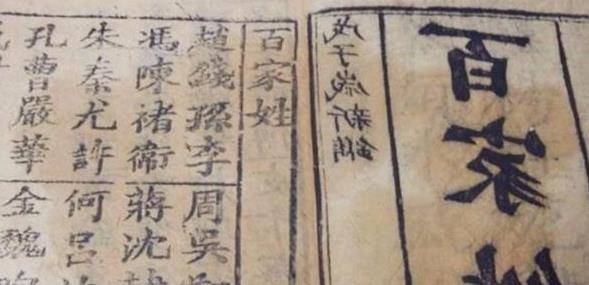 百家
戊子歲新鐫
百家姓
趙錢孫李 周吳
馮陳褚衛 蔣沈
朱秦尤許 何呂
孔曹嚴華 金魏